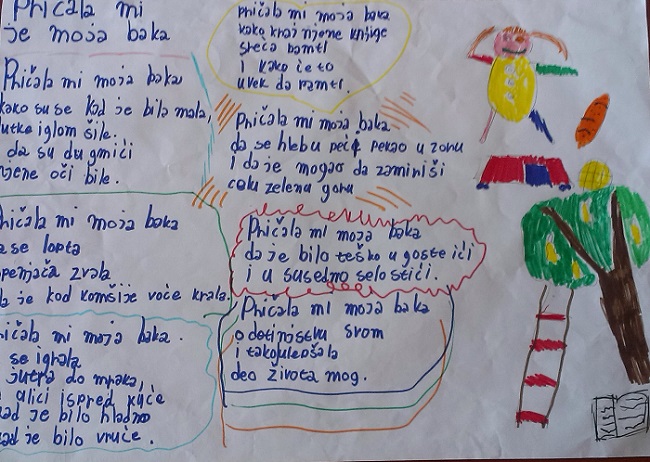 Pričala mi
je moja baka
Pričala mi moja baka
kako su se kad je bila mala,
lutke iglom šile.
da su dugmići
njene oči bile.
Pričala mi moja baka
da se lopta
openjača zvala
da je kod komšije voće krala.
Pričala mi moja baka.
se igrala
jutra do mraka,
ulici ispred kuće
kad je bilo hladno
kad je bilo vruće.
Pričala mi moja baka
kako kraj njene knjige
sreća pamti
i kako će to
uvek da pamti.
Pričala mi moja baka
da se hlebu peći pekao u zoru
i da je mogao da zamiriši
celu zelenu goru
Pričala mi moja baka
da je bilo teško u goste ići
i u susedno selo stići.
Pričala mi moja baka
o detinjstvu svom
i tako ulepšala
deo života mog.